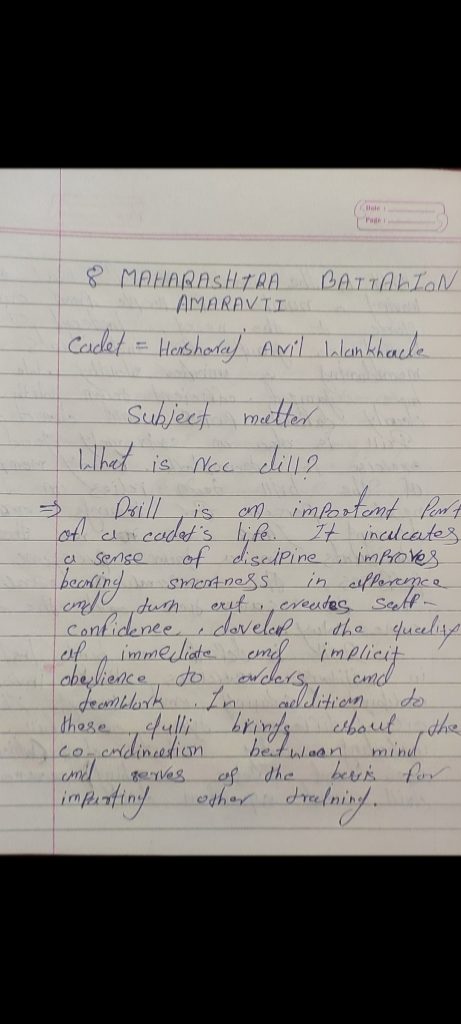 Date :
Page :
8 MAHARASHTRA BATTALION
AMARAVTI
Cadet = Harsharaj Anil Wankhade
Subject matter
What is Ncc dill?
⇒ Drill is an important Part
of a cadet's life. It incalcates
a sense of disclpine, improves
bearing smartness in apperence
and turn out, creates self-
confidence, develop the quality
of immediate and implicit
obedience to orders, and
teamwork. In addition to
these, dulli brings about the
co-ordination between mind
and serves as the basis for
imparting other training.